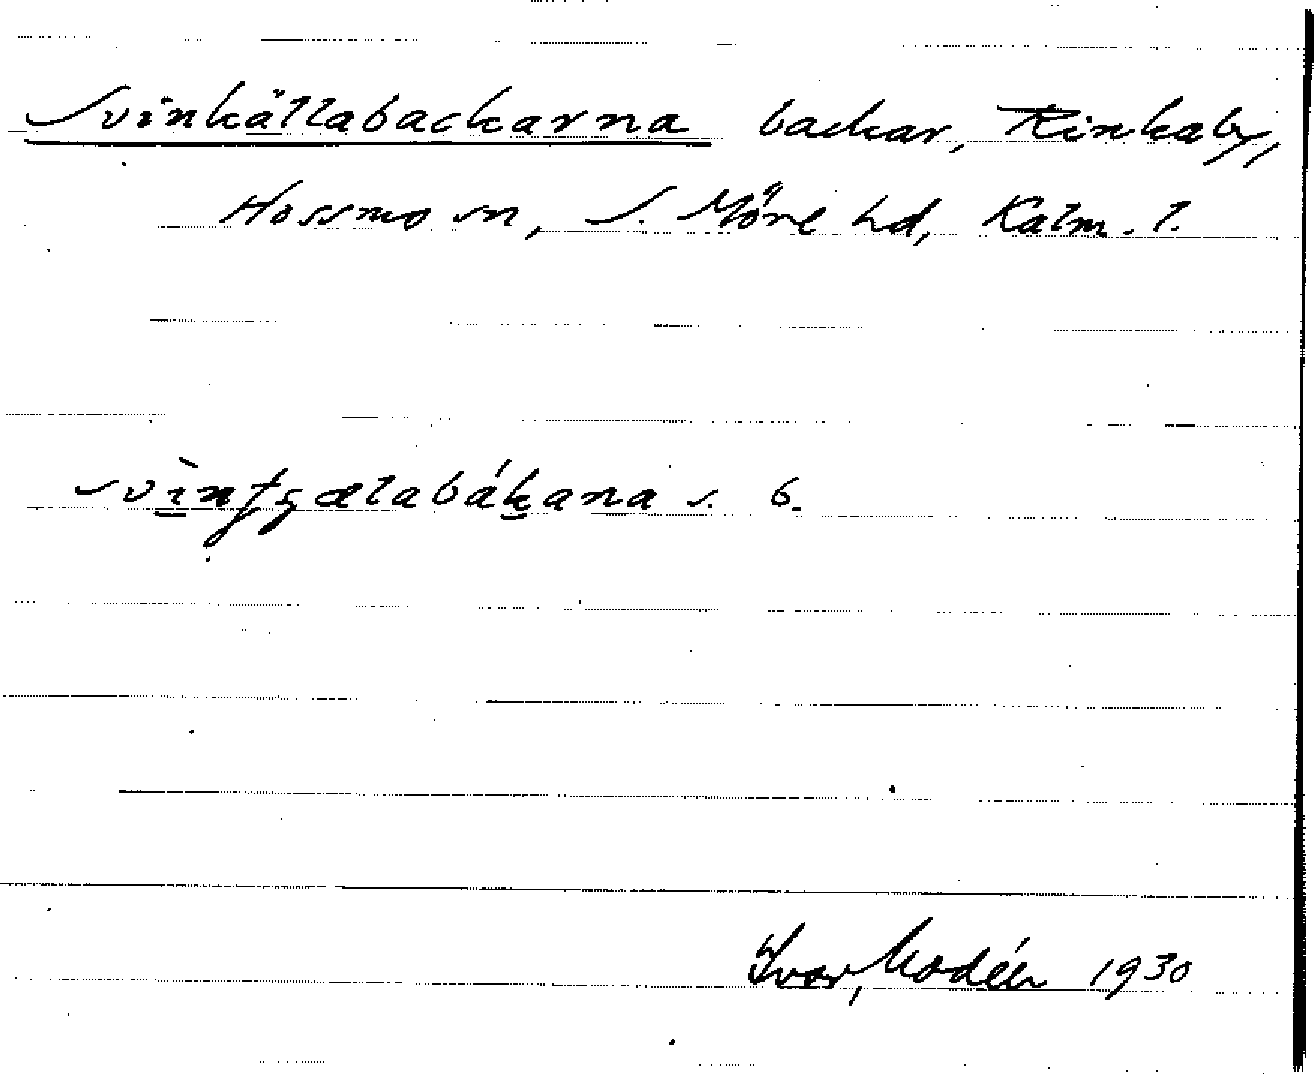 Svinkällabackarna backar, Rinkaby,
Hossmo sn, S. Möre hd, Kalm. l.
s. b.
Ivar Modéer 1930